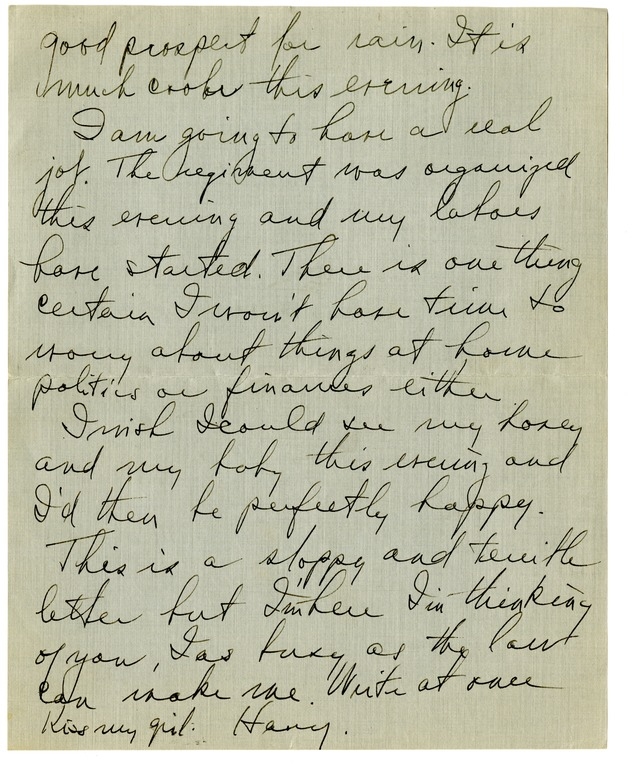 good prospect for rain. It is
much cooler this evening.
I am going to have a real
job. The regiment was organized
this evening and my labors
have started. There is one thing
certain I won't have time to
worry about things at home
politics or finances either
I wish I could see my honey
and my baby this evening and
I'd then be perfectly happy.
This is a sloppy and terrible
letter but I'm here I'm thinking
of you, I as busy as the law
can make me. Write at once
Kiss my girl. Harry.